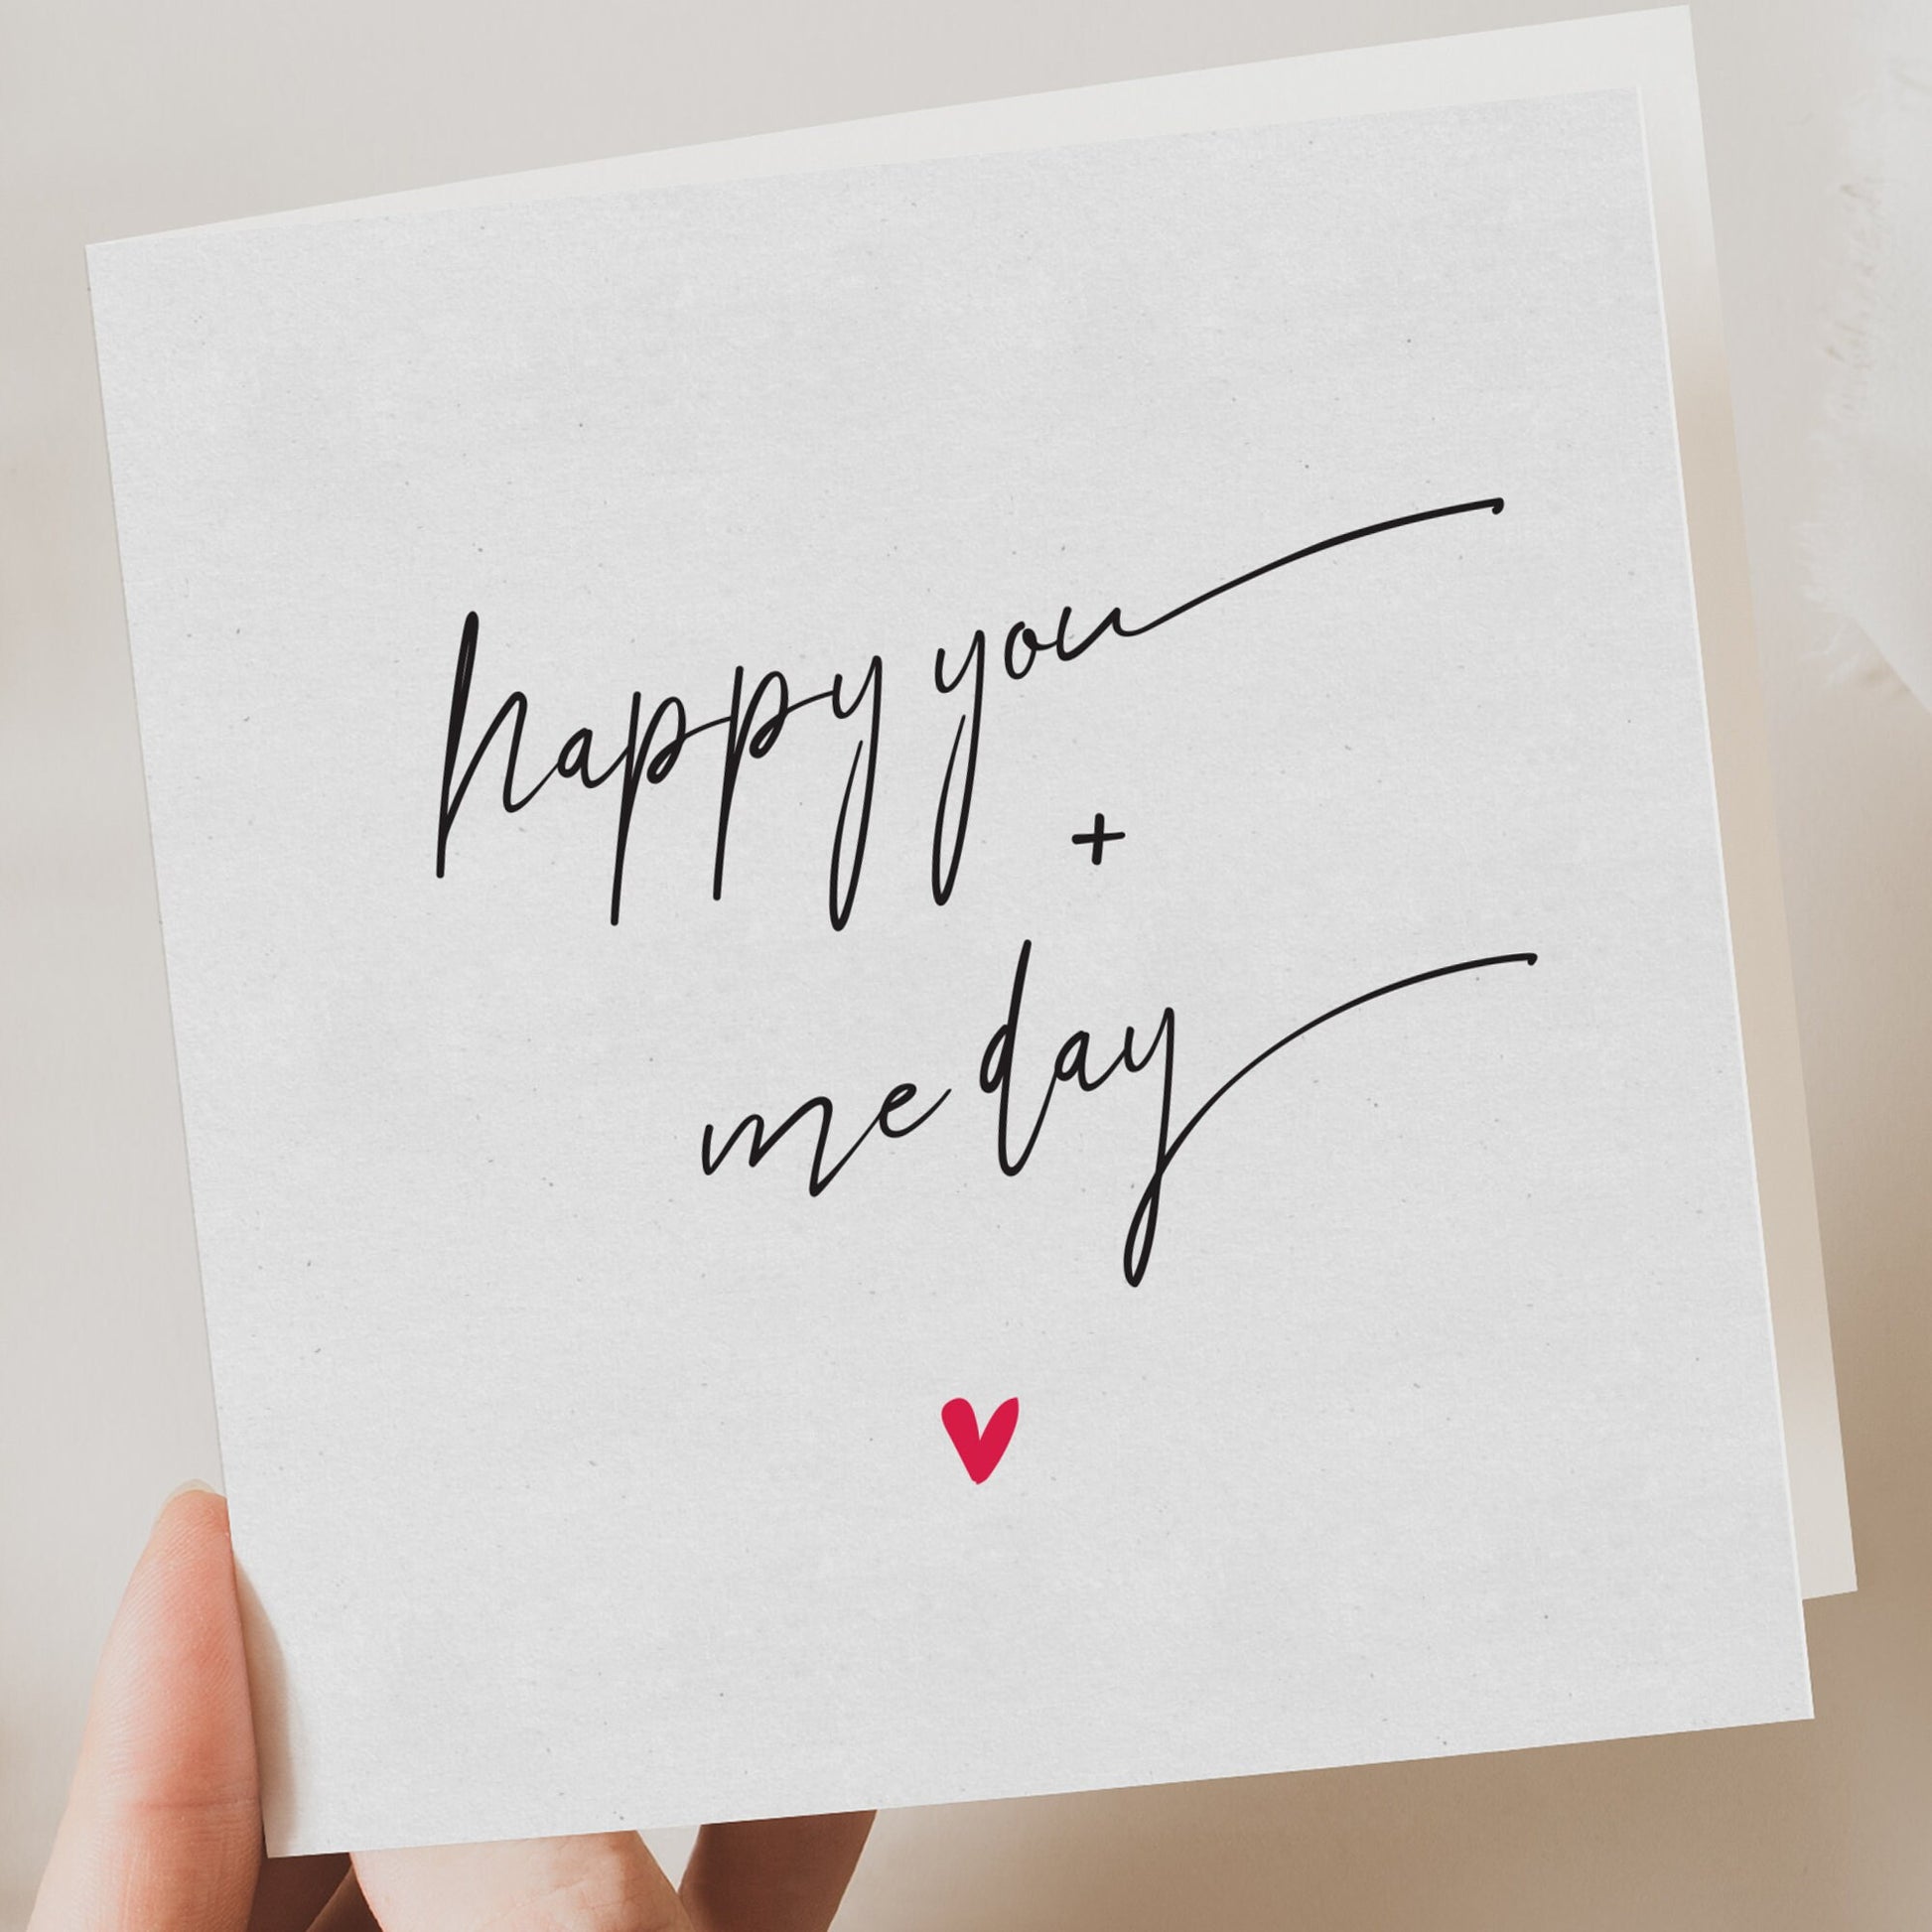 happy you
+
me day